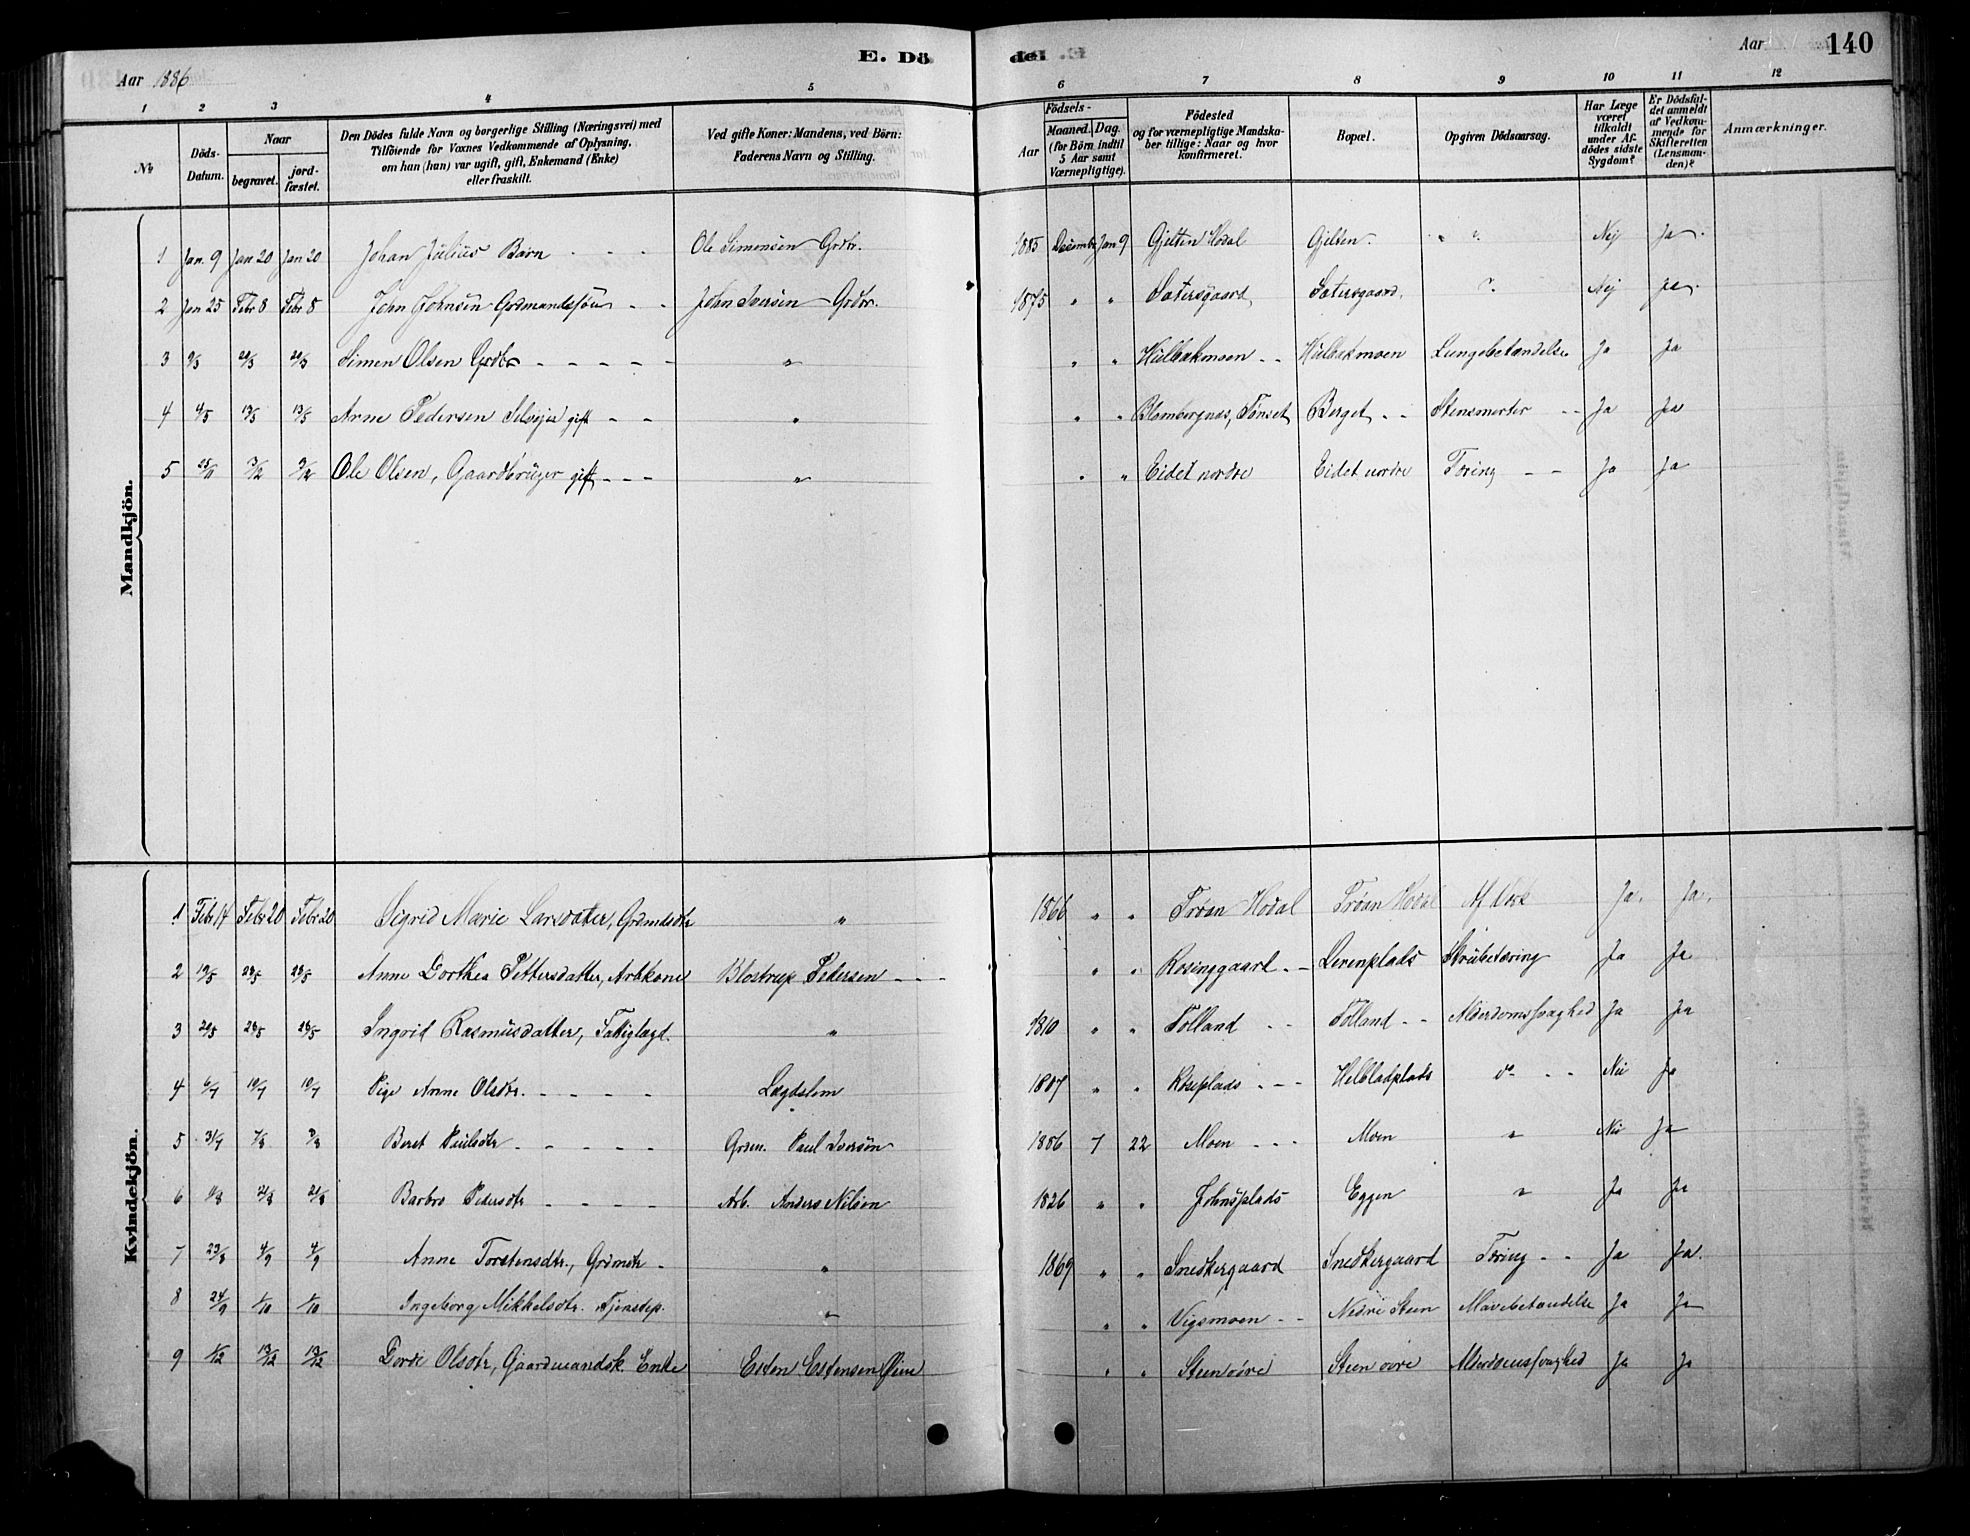 E. Dö
de
Aar 140
Aar 1886
1 2 3 4 5 6 7 8 9 10 11 12
No
Döds-Datum.
Naar
begravet.
jord-fæstet.
Den Dödes fulde Navn og borgerlige Stilling (Næringsvei) med
Tilföiende for Voxnes Vedkommende af Oplysning,
om han (han) var ugift, gift, Enkemand (Enke)
eller fraskilt.
Ved gifte Koner: Mandens, ved Börn:
Faderens Navn og Stilling.
Födsels-
Aar
Maaned. Dag.
(for Börn indtil
5 Aar samt
Værnepligtige).
Födested
og for værnepligtige Mandska-
ber tillige: Naar og hvor
konfirmeret.
Bopæl.
Opgiven Dödsaarsag.
Har Læge
været
tilkaldt
under Af-
dödes sidste
Sygdom?
Er Dödsfal-
det anmeldt
af Vedkom-
mende for
Skifteretten
(Lensman-
den)?
Anmærkninger.
Mandkjön.
1 Jan. 9 Jan 20 Jan 20 Johan Julius Barn - - - Ole Simensen Grdbr. 1885 Jan 9 Gjelten Hodal Gjelten. " " Nej ja.
2 Jan 25 Febr 8 Febr 8 John Johnsen Grdmandssøn - - John Iversen Grdbr. 1875 " " Satersgaard Satersgaard. " Nej ja.
3 9/3 20/3 20/3 Simen Olsen Grdbr - - - - - " " " Hulbakmoen - - Hulbakmoen Lungebetændelse Ja Ja
4 4/5 13/5 13/5 Arne Pedersen Selvejer gift - - " " " Blombergnes, Tønset Berget - - Stensmerter - - Ja Ja
5 25/11 3/12 9/12 Ole Olsen, Gaardbruger gift - - - " " " Eidet nordre Eidet nordre Tæring - - Ja Ja
Kvindekjön.
1 Febr 14 Febr 20 Febr 20 Sigrid Marie Larsdatter, Grdmdsdtr " 1866 " " Trøan Hodal Trøan Hodal Ja. Ja.
2 19/5 28/5 28/5 Anne Dorthea Pettersdatter, Arbkone Blostrup Pedersen - - - " " Rosinggaard - - Lerenplads Strubetæring Ja Ja
3 20/5 28/5 28/5 Ingrid Rasmusdatter, Fattiglagd. " 1810 " " Tolland - - Tolland - - Alderdomssvaghed Ja Ja
4 6/7 10/7 10/7 Pige Anne Olsdtr. - - - - Lægdslem 1807 " " - - - do - - Nei Ja
5 31/7 7/8 7/8 Beret Paulsdtr - - - - - Grdm. Paul Iversøn 1886 7 22 Moen - - - Moen " Nei Ja
6 11/8 21/8 21/8 Barbro Pedersdtr - - - - Arb. Anders Nilsen 1826 " " Johnsplads Eggen " Ja Ja
7 23/8 4/9 4/9 Anne Torstensdtr., Grdmdtr - " 1869 " " Snedkergaard Snedkergaard Tæring - - Ja Ja.
8 24/9 1/10 1/10 Ingeborg Mikkelsdtr. Tjenstep. " " " Vigsmoen - - Nedre Steen Mavebetændelse Ja Ja
9 1/12 13/12 13/12 Dordi Olsdtr, Gaardmandsk. Enke Esten Estensen " " Steen øvre Steen øvre Alderdomssvaghed Ja Ja